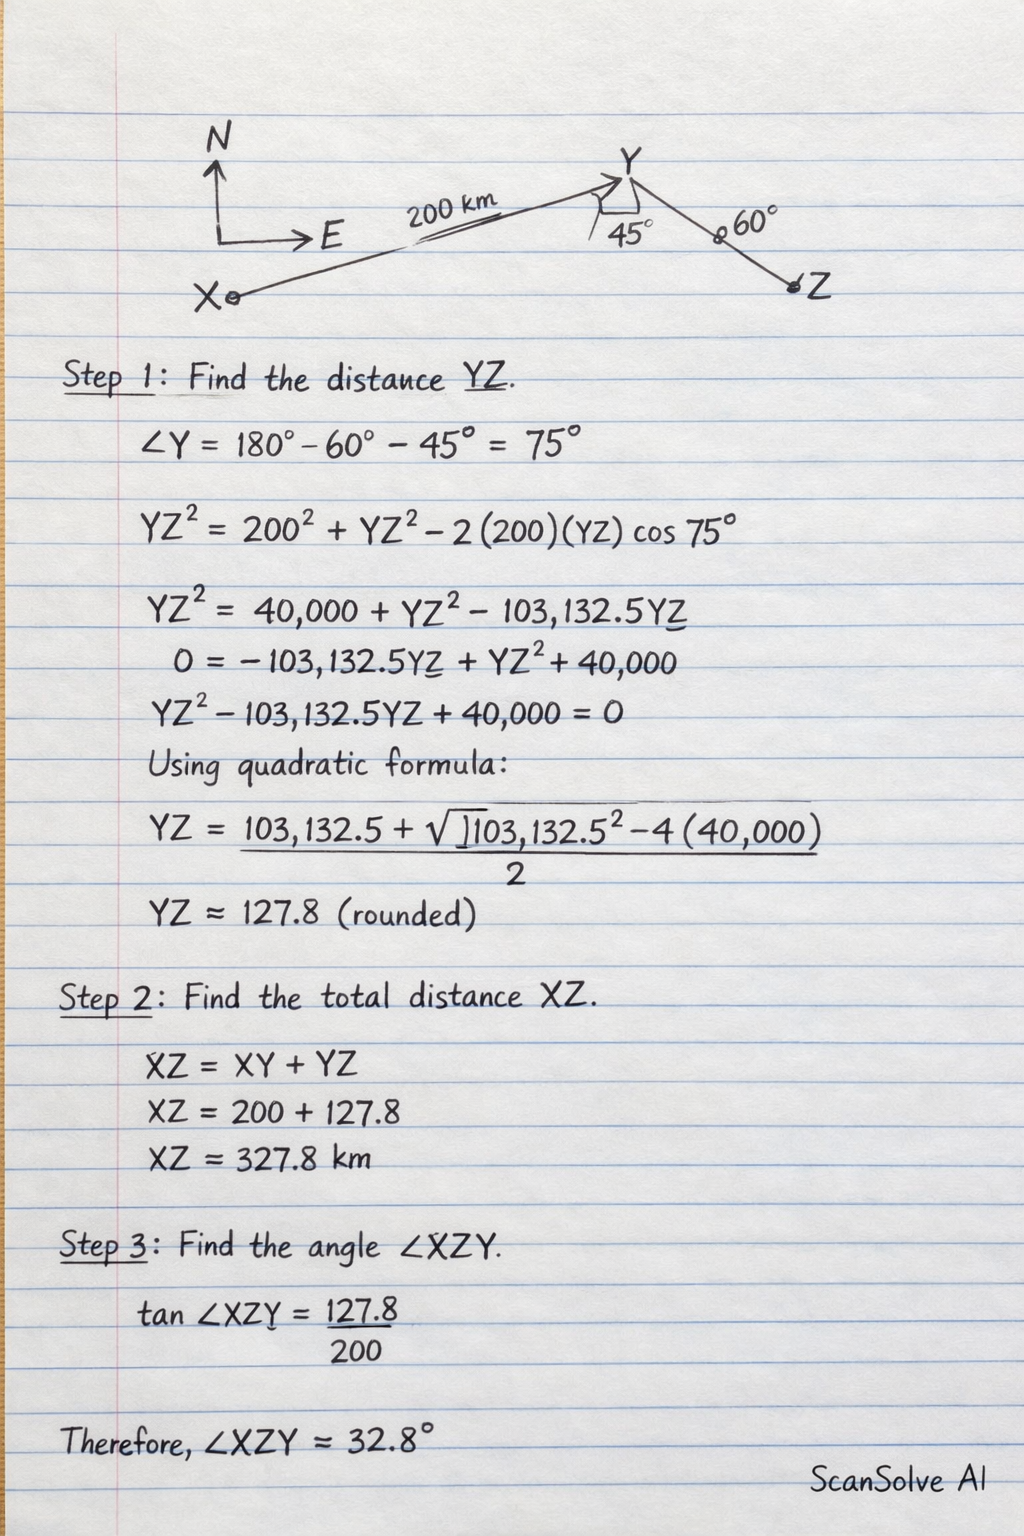 N
Y
200 km
E
60°
45°
X
Z
Step 1: Find the distance YZ.
∠Y = 180° – 60° – 45° = 75°
YZ² = 200² + YZ² – 2(200)(YZ) cos 75°
YZ² = 40,000 + YZ² – 103,132.5YZ
0 = –103,132.5YZ + YZ² + 40,000
YZ² – 103,132.5YZ + 40,000 = 0
Using quadratic formula:
YZ = 103,132.5 + √103,132.5² – 4(40,000)
2
YZ ≈ 127.8 (rounded)
Step 2: Find the total distance XZ.
XZ = XY + YZ
XZ = 200 + 127.8
XZ ≈ 327.8 km
Step 3: Find the angle ∠XZY.
tan ∠XZY = 127.8
200
Therefore, ∠XZY ≈ 32.8°
ScanSolve AI